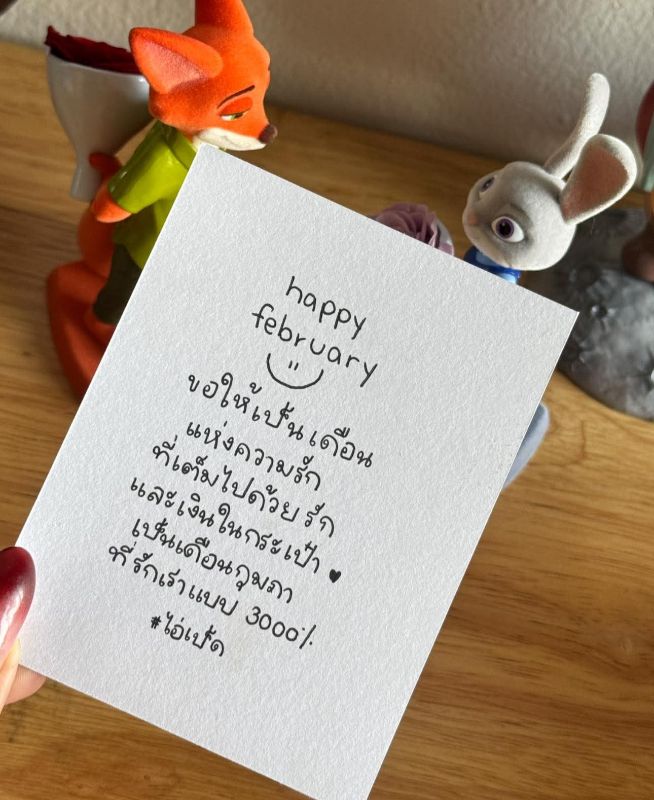 happy
february
ขอให้เป็นเดือน
แห่งความรัก
ที่เต็มไปด้วยรัก
และเงินในกระเป๋า ♥
เป็นเดือนกุมภา
ที่รักเราแบบ 3000%
#ไอ่เป็ด